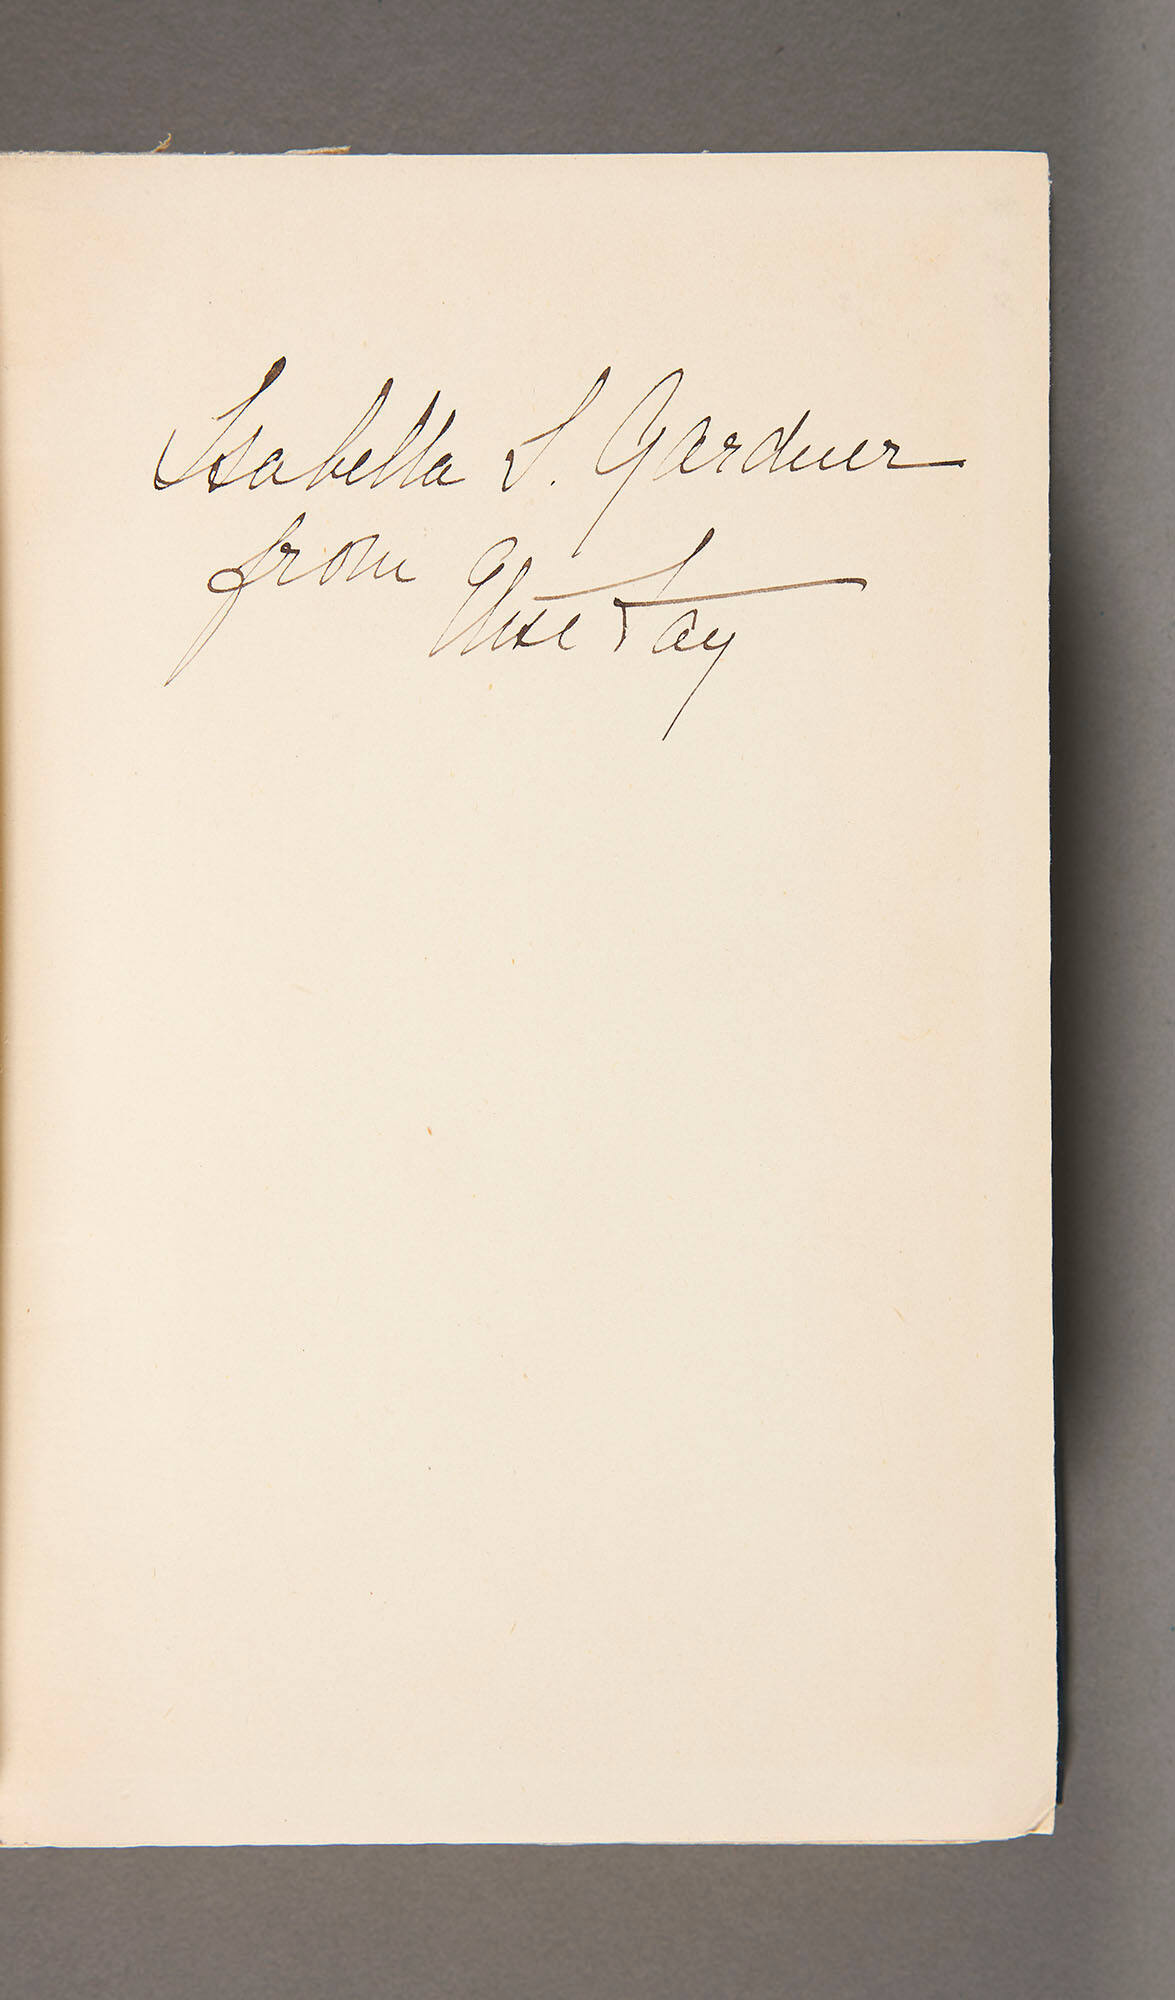 Isabella S. Gardner
from Elise Fay